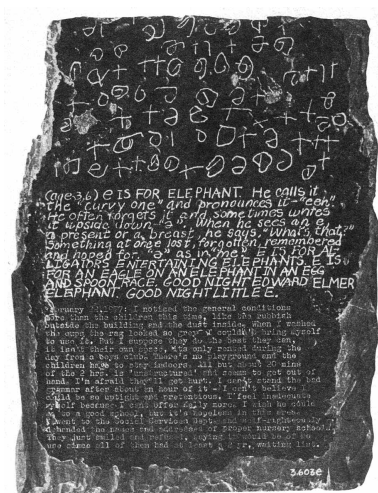 (age 3.6) e IS FOR ELEPHANT. He calls it
the "curvy one" and pronounces it-"eeh."
He often forgets it and sometimes writes
it upside down-"ə". When he sees an e,
a present or a breast, he says, "What's that?"
Something at once lost, forgotten, remembered
and hoped for. "ə" as in "me". E IS FOR AL
LIGATORS ENTERTAINING ELEPHANTS. E IS
FOR AN EAGLE ON AN ELEPHANT IN AN EGG
AND SPOON RACE. GOOD NIGHT EDWARD ELMER
ELEPHANT. GOOD NIGHT LITTLE E.
1977: I noticed the general conditions
more than the children this time, like the rubbish
outside the building and the dust inside. When I washed
the cups the rag looked so grey I couldn't bring myself
to use it. But I suppose they do the best they can,
it isn't their own space, its only rented during the
day from a boys club. There's no playground and the
children have to stay indoors. All but about 20 mins
of the 2 hrs. is 'unstructured' and seems to get out of
hand. I'm afraid he'll get hurt. I can't stand the bad
grammar after about an hour of it - I can't believe I
could be so uptight and pretentious. I feel inadequate
myself because I can't offer Kelly more. I wish he could
go to a good school, but it's hopeless in this area.
I went to the Social Services Dept. and self-righteously
demanded the names and addresses of proper nursery schools.
They just smiled and refused, saying it would be of no
use since all of them had at least a 2 yr. waiting list.
3.603e